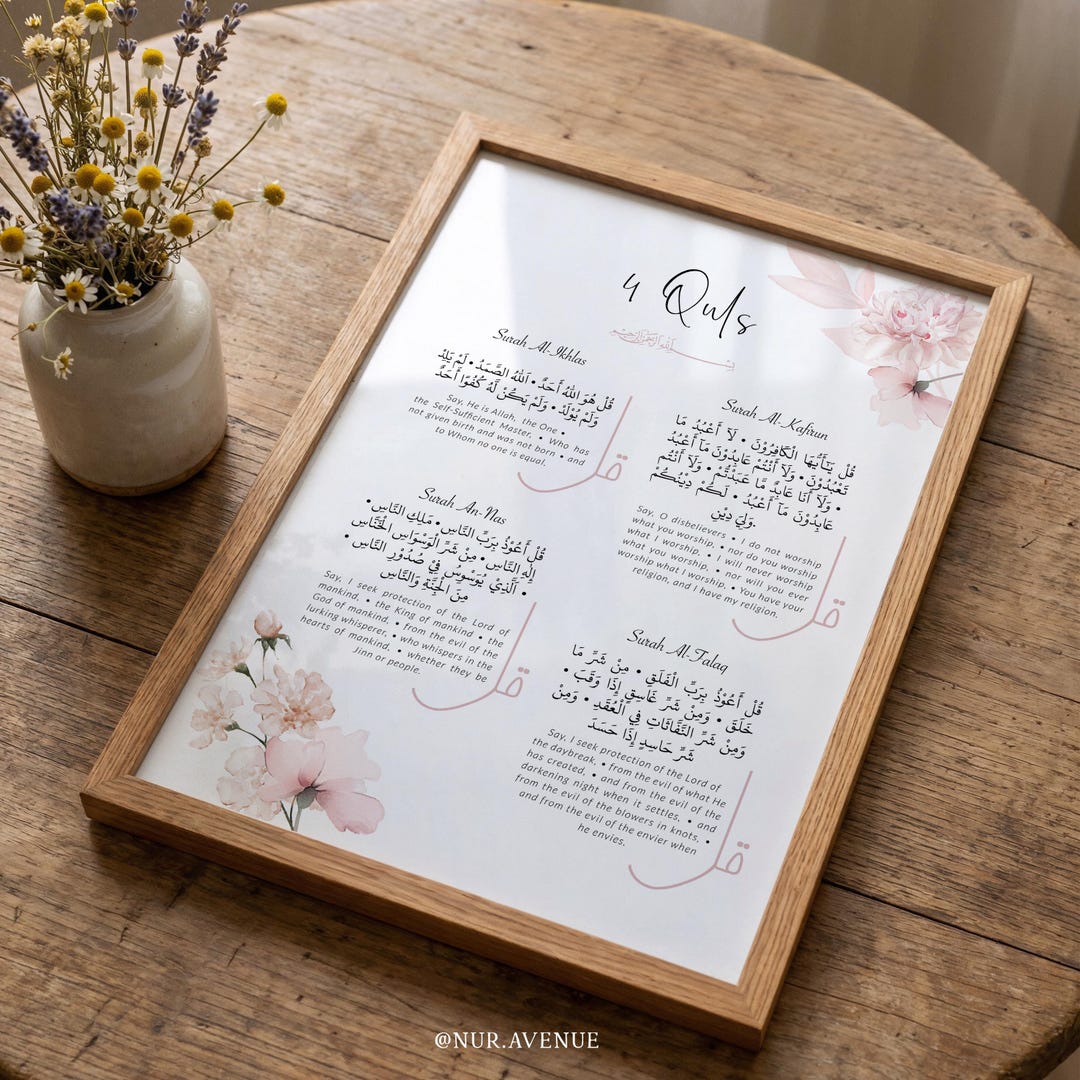 4 Quls
Surah Al-Ikhlas
قُلْ هُوَ اللّٰهُ أَحَدٌ • اَللّٰهُ الصَّمَدُ • لَمْ يَلِدْ
وَلَمْ يُوْلَدْ • وَلَمْ يَكُنْ لَّهُ كُفُوًا أَحَدٌ
Say, He is Allah, the One •
the Self-Sufficient Master, • Who has
not given birth and was not born • and
to Whom no one is equal.
قل
Surah Al-Kafirun
قُلْ يَـٰٓأَيُّهَا الْكَافِرُوْنَ • لَآ أَعْبُدُ مَا
تَعْبُدُوْنَ • وَلَآ أَنْتُمْ عَابِدُوْنَ مَآ أَعْبُدُ
• وَلَآ أَنَا عَابِدٌ مَّا عَبَدْتُّمْ • وَلَآ أَنْتُمْ
عَابِدُوْنَ مَآ أَعْبُدُ • لَكُمْ دِيْنُكُمْ
وَلِيَ دِيْنِ.
Say, O disbelievers • I do not worship
what you worship, • nor do you worship
what I worship. • I will never worship
what you worship, • nor will you ever
worship what I worship. • You have your
religion, and I have my religion.
قل
Surah An-Nas
قُلْ أَعُوْذُ بِرَبِّ النَّاسِ • مَلِكِ النَّاسِ •
إِلٰهِ النَّاسِ • مِنْ شَرِّ الْوَسْوَاسِ الْخَنَّاسِ
• الَّذِيْ يُوَسْوِسُ فِيْ صُدُوْرِ النَّاسِ •
مِنَ الْجِنَّةِ وَالنَّاسِ
Say, I seek protection of the Lord of
mankind, • the King of mankind • the
God of mankind, • from the evil of the
lurking whisperer, • who whispers in the
hearts of mankind, • whether they be
Jinn or people.
قل
Surah Al-Falaq
قُلْ أَعُوْذُ بِرَبِّ الْفَلَقِ • مِنْ شَرِّ مَا
خَلَقَ • وَمِنْ شَرِّ غَاسِقٍ إِذَا وَقَبَ •
وَمِنْ شَرِّ النَّفَّاثَاتِ فِي الْعُقَدِ • وَمِنْ
شَرِّ حَاسِدٍ إِذَا حَسَدَ
Say, I seek protection of the Lord of
the daybreak, • from the evil of what He
has created, • and from the evil of the
darkening night when it settles, • and
from the evil of the blowers in knots, •
and from the evil of the envier when
he envies.
قل
@NUR.AVENUE